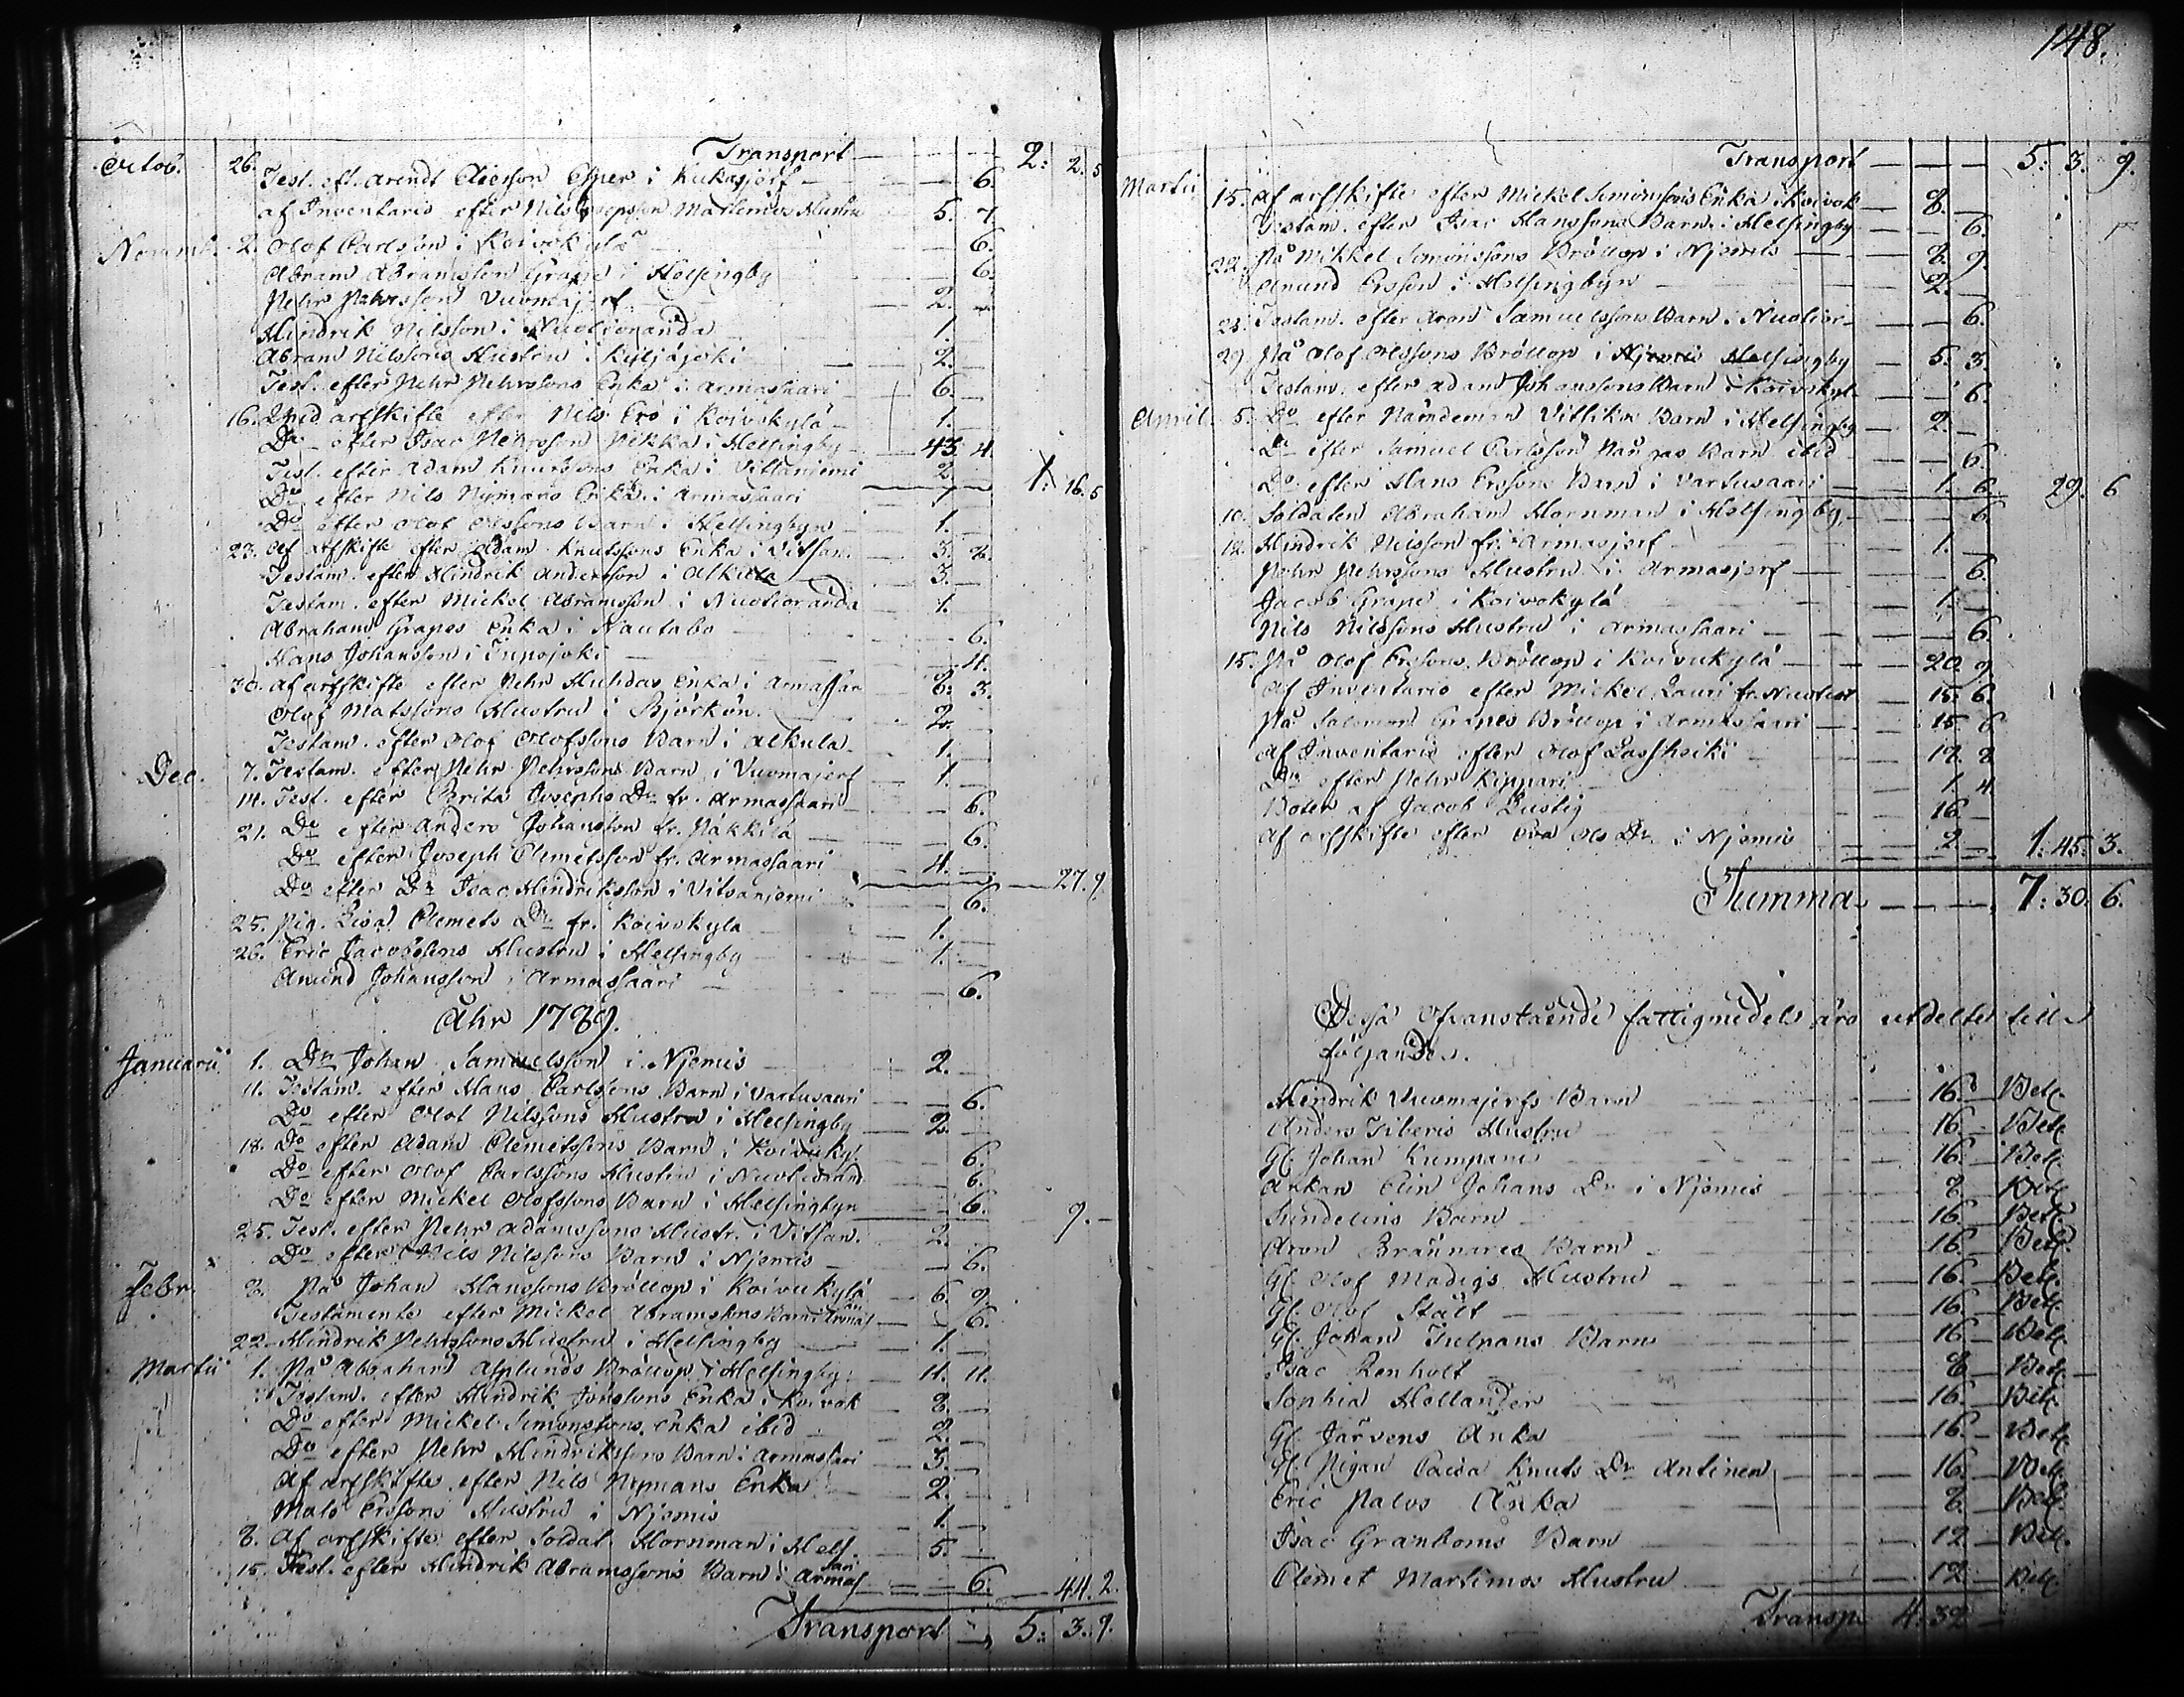 Transport — 2: 2. 5
Octob. 26. Test. eft. Arendt i Kukasjerf — 6.
af Inventario efter Nils Hustru 5. 7.
Novemb. 2. Olof Carlsson i Koivokylä — 6.
Abram Abramsson Grape i Helsingby — 6.
Pehr Pehrsson Vuomajerf — 2. —
Hindrik Nilsson i Nuotioranda — 1.
Abram Nilssons Hustru i Kyljäjoki — 2. —
Test. efter Pehr Pehrssons Enka i Armassaari — 6. —
16. Wid arfskifte efter Nils Erö i Koivokylä — 1. —
Do efter Isac Pehrsson Nikka i Helsingby — 43. 4.
Test. efter Adam Knutssons Enka i Vittaniemi 2. — 1: 16. 5
Do efter Nils Nymans Enka i Armassaari — 1 —
Do efter Olof Olssons Barn i Helsingbyn — 1.
23. Af arfskifte efter Adam Knutssons Enka i Vitsan. — 3. 2.
Testam. efter Hindrik Andersson i Alkula — 3. —
Testam. efter Mickel Abramsson i Nuotioranda — 1.
Abrahams Grapes Enka i Nautabo — 6.
Hans Johansson i — 4.
30. Af arfskifte efter Pehr Huhdas Enka i Armassar 6. 3.
Olof Matssons Hustru i Björkön. — 2. —
Testam. efter Olof Olofssons Barn i Alkula — 1. —
Dec. 7. Testam. efter Pehr Pehrssons Barn i Vuomajerf — 1. —
14. Test. efter Brita Josephs Dr fr. Armassaari — 6.
21. Do efter Anders Johansson fr. Näkkilä — 6.
Do efter Joseph Clemetsson fr. Armassaari — 4. — 27. 9
Do efter Dr Isac Hindriksson i Vitsaniemi — 6.
25. Pig. Lisa Clemets Dr fr. Koivokyla — 1. —
26. Eric Jacobssons Hustru i Helsingby — 1. —
Anund Johansson i Armassaari — 6.
Åhr 1789.
Januarii 1. Dr Johan Samuelsson i Njemis — 2.
11. Testam. efter Hans Carlssons Barn i Vartusaari — 6.
Do efter Olof Nilssons Hustru i Helsingby — 2. —
18. Do efter Adam Clemetssons Barn i Koivuky. 6.
Do efter Olof Carlssons Hustru i Nuoliorand 6.
Do efter Mickel Olofssons Barn i Helsingbyn — 6. 9. —
25. Test. efter Pehr Adamssons Hustr. i Vitsan. — 2. —
Do efter Nils Nilssons Barn i Njemis — 6.
Febr. 8. På Johan Hanssons Bröllop i Koivukylä — 6. 9.
Testamente efter Mickel Abramssons Barn i Armas — 6.
22. Hindrik Pehrssons Hustru i Helsingby — 1. —
Martii 1. På Abraham Asplunds Bröllop i Helsingby. — 11. 11.
Testam. efter Hindrik Jonssons Enka i Koivok — 8. —
Do efter Mickel Simonssons Enka ibid — 2. —
Do efter Pehr Hindrikssons Barn i Armassari — 3. —
Af arfskifte efter Nils Nymans Enka — 2. —
Mats Erssons Hustru i Njemis — 1. —
8. Af arfskifte efter Soldat. Hornman i Hels. — 5. —
15. Test. efter Hindrik Abramssons Barn i Armassari — 6. — 44. 2.
Transport — 5: 3. 9.
148.
Transport — 5: 3. 9.
Martii 15. Af arfskifte efter Mickel Simonssons Enka i Koivok — 8. —
Testam. efter Isac Hanssons Barn i Helsingby — 6.
22. På Mikkel Simonssons Bröllop i Njemis — 8. 9.
Anund Ersson i Helsingbyn — 2. —
25. Testam. efter Aron Samuelssons Barn i Nuolior — 6.
29. På Olof Olssons Bröllop i Njemis Helsingby — 5. 3.
Testam. efter Adam Johanssons Barn i Koivokyl — 6.
April 5. Do efter Nämdeman Vittikas Barn i Helsingby — 2. —
Do efter Samuel Carlsson Barn ibid — 6.
Do efter Hans Erssons Barn i Vartusaari — 1. 6. 29. 6
10. Soldaten Abraham Hornman i Helsingby. — 6.
12. Hindrik Nilsson fr. Armasjerf — 1. —
Pehr Pehrssons Hustru i Armasjerf — 6.
Jacob Grape i Koivokylä — 1. —
Nils Nilssons Hustru i Armassaari — 6.
15. På Olof Erssons Bröllop i Koivukylä — 20. 9.
Af Inventario efter Mickel Lauri fr. Nuolior — 15. 6.
På Salomon Grapes Bröllop i Armassaari — 15. 6
Af Inventario efter Olof Lassheiki — 12. 8
Do efter Pehr Kippari — 1. 4.
Böter af Jacob Lustig — 16. —
Af arfskifte efter Eva Ols Dr i Njemis — 2. — 1: 45. 3.
Summa — 7: 30. 6.
Dessa ofvanstående fattigmedel äro utdelte till
följande.
Hindrik Vuomajerfs Barn — 16. — Bet.
Anders Tiberis Hustru — 16. — Bet.
Gl. Johan Kumpane — 16. — Bet.
Änkan Elin Johans Dr i Njemis — 8. — Bet.
Sundelins Barn — 16. — Bet.
Aron Brännares Barn — 16. — Bet.
Gl. Olof Madigs Hustru — 16. — Bet.
Gl. Olof Stålt — 16. — Bet.
Gl. Johan Tulpans Barn — 16. — Bet.
Isac Renholt — 8. — Bet.
Sophia Hellander — 16. — Bet.
Gl. Järvens Änka — 16. — Bet.
Gl. Pigan Carin Knuts Dr Antinen — 16. — Bet.
Eric Palos Änka — 8. — Bet.
Isac Granboms Barn — 12. — Bet.
Clemet Martimos Hustru — 12. — Bet.
Transp. 4: 32 —